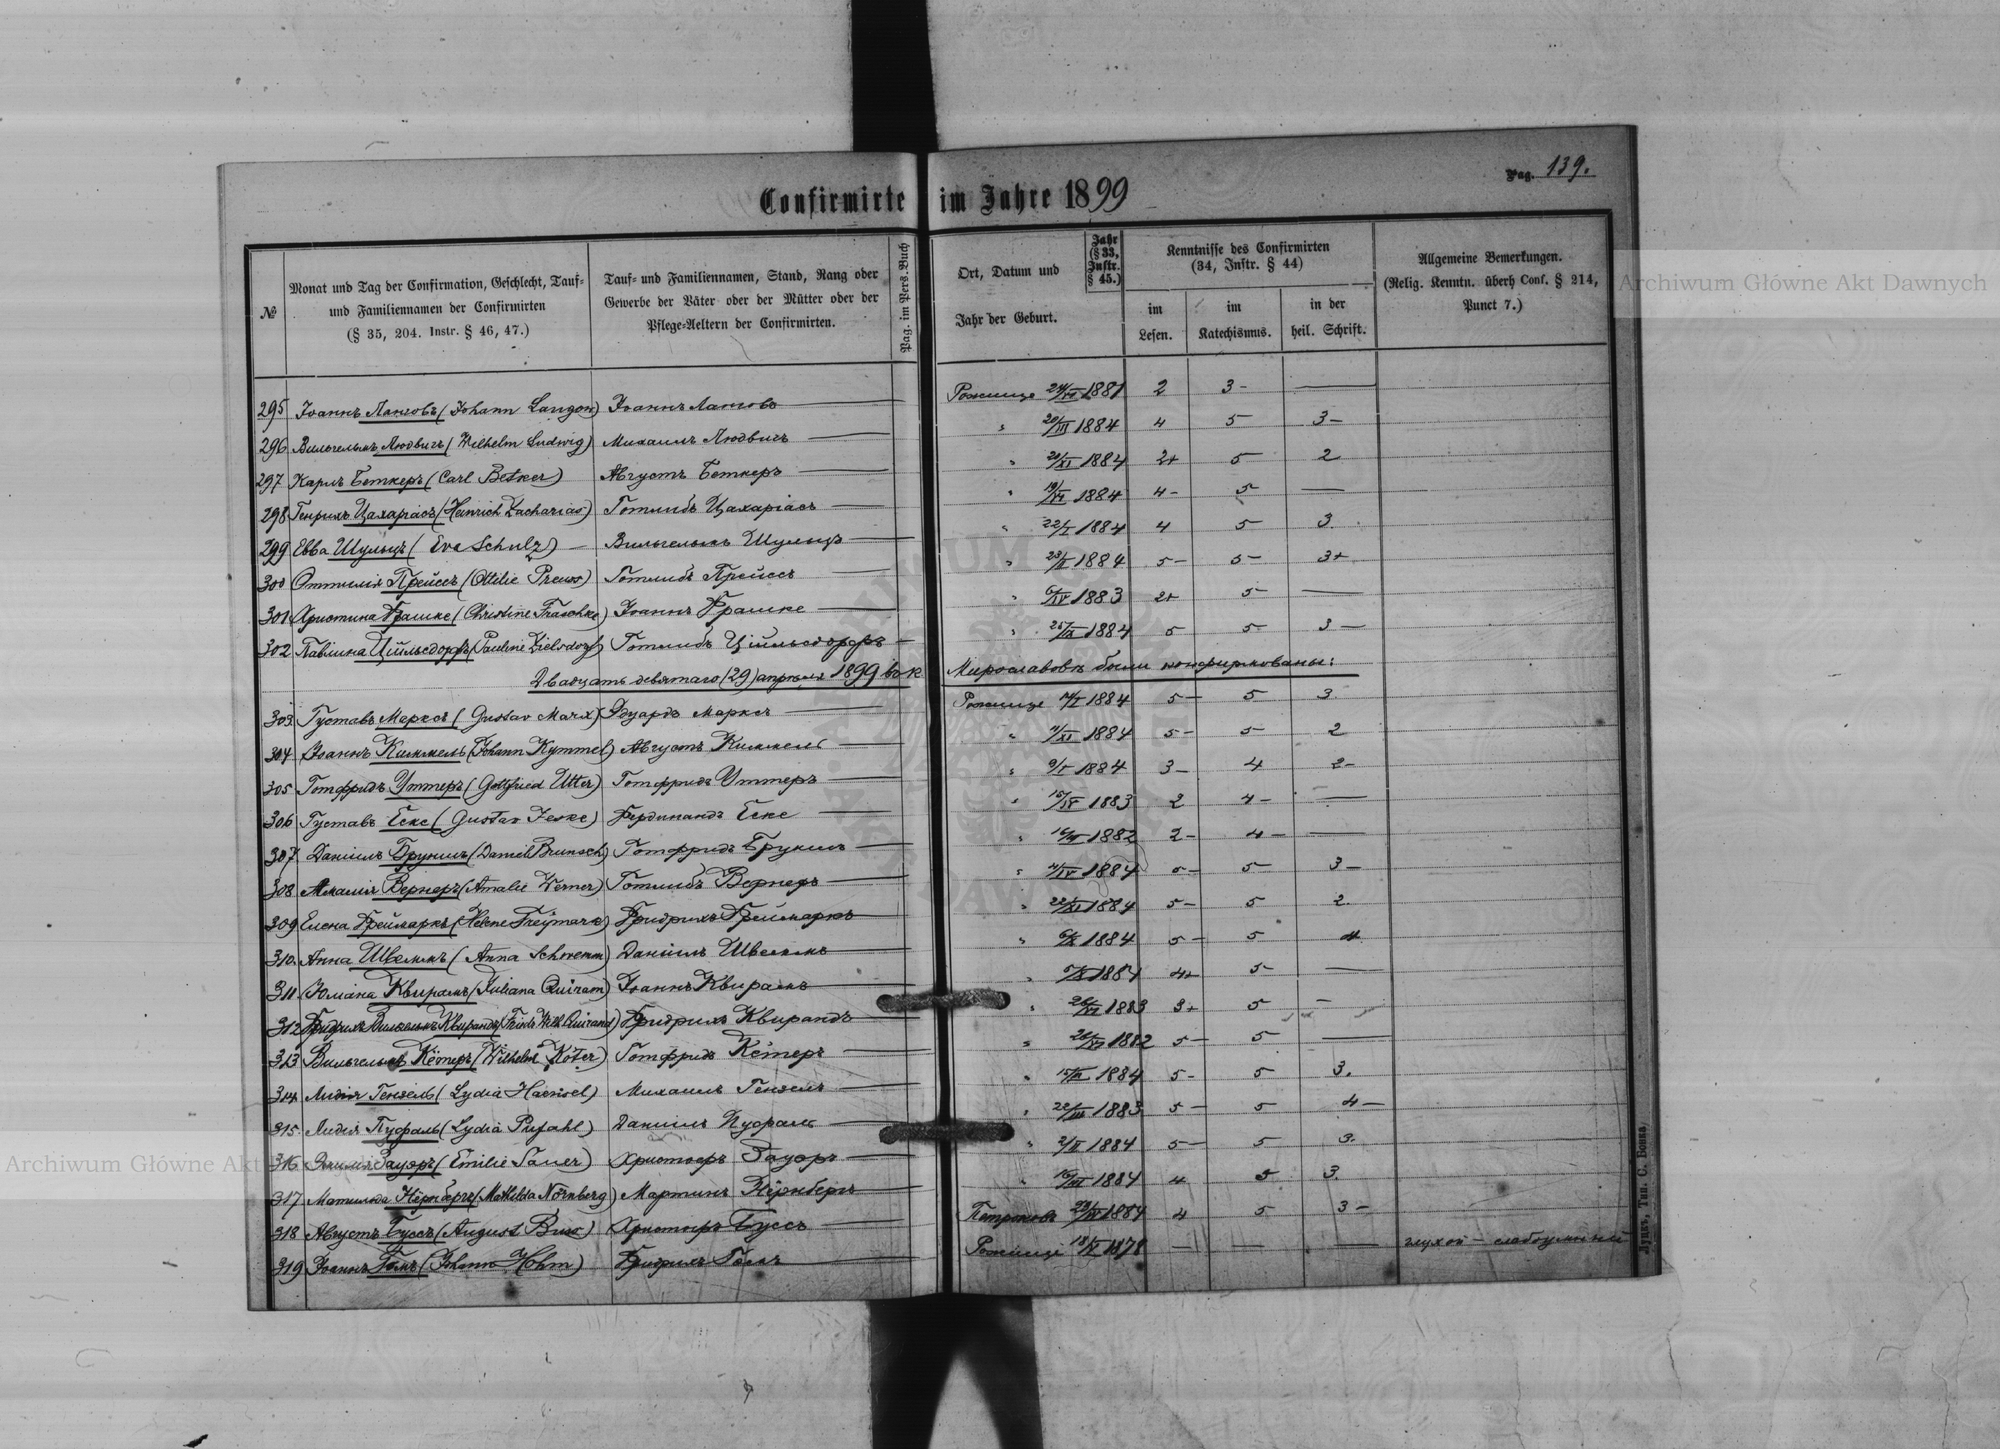 Pag. 139.
Confirmirte im Jahre 1899
№
Monat und Tag der Confirmation, Geschlecht, Tauf- und Familiennamen der Confirmirten (§ 35, 204. Instr. § 46, 47.)
Tauf- und Familiennamen, Stand, Rang oder Gewerbe der Väter oder der Mütter oder der Pflege-Aeltern der Confirmirten.
Pag. im Pers. Buch
Ort, Datum und Jahr der Geburt.
Jahr (§ 33, Instr. § 45.)
Kenntnisse des Confirmirten (34, Instr. § 44)
im Lesen.
im Katechismus.
in der heil. Schrift.
Allgemeine Bemerkungen. (Relig. Kenntn. überh Conf. § 214, Punct 7.)
295 Іоаннъ Ланговъ (Johann Langow) Іоаннъ Ланговъ — Рожище 24/XII 1881 2 3- —
296 Вильгельмъ Людвигъ (Wilhelm Ludwig) Михаилъ Людвигъ — " 20/III 1884 4 5 3-
297 Карлъ Беткеръ (Carl Betker) Августъ Беткеръ — " 20/XI 1884 2+ 5 2
298 Генрихъ Цахаріасъ (Heinrich Zacharias) Готлибъ Цахаріасъ — " 1884 4- 5 —
299 Евва Шульцъ (Eva Schulz) — Вильгельмъ Шульцъ — " 22/I 1884 4 5 3.
300 Оттилія Прейсъ (Ottilie Preuss) Готлибъ Прейссъ — " 1884 5- 5- 3+
301 Христина Фрашке (Christine Fraschke) Іоаннъ Фрашке — " 1883 2+ 5 —
302 Павлина Цильсдорфъ (Pauline Zielsdorf) Готлибъ Цильсдорфъ — " 25/IX 1884 5 5 3 —
Двадцать девятаго (29) апрѣля 1899 въ к. Мирославовкѣ были конфирмованы:
303. Густавъ Марксъ (Gustav Marx) Эдуардъ Марксъ — Рожище 1884 5- 5 3
304 Іоаннъ Киммель (Johann Kymmel) Августъ Киммель — " 11/XI 1884 5- 5 2
305 Готфридъ Уттеръ (Gottfried Utter) Готфридъ Уттеръ — " 9/I 1884 3- 4 2-
306 Густавъ Еске (Gustav Jeske) Фердинандъ Еске — " 15/IV 1883 2 4- —
307 Даніилъ Бруншъ (Daniel Brunsch) Готфридъ Бруншъ — " 1882 2- 4- —
308. Амалія Вернеръ (Amalie Werner) Готлибъ Вернеръ — " 1884 5- 5 3-
309 Елена Фреймаркъ (Helene Freÿmark) Фридрихъ Фреймаркъ " 22/XI 1884 5- 5 2.
310. Анна Швеммъ (Anna Schwemm) Даніилъ Швеммъ — " 1884 5- 5 4
311. Юліана Квирамъ (Juliana Quiram) Іоаннъ Квирамъ " 1884 4+ 5 —
312. Фридрихъ Вильгельмъ Квирандъ (Friedr. Wilh. Quirand) Фридрихъ Квирандъ " 1883 3+ 5 —
313 Вильгельмъ Кётеръ (Wilhelm Köter) Готфридъ Кётеръ — " 1882 5- 5 —
314. Лидія Гензель (Lydia Haensel) Михаилъ Гензель — " 1884 5- 5 3.
315. Лидія Пуфаль (Lydia Pufahl) Даніилъ Пуфаль " 22/III 1883 5- 5 4-
316. Эмилія Зауэръ (Emilie Sauer) Христофъ Зауэръ — " 2/II 1884 5- 5 3.
317 Матильда Нёрнбергъ (Mathilda Nörnberg) Мартинъ Нёрнбергъ " 1884 4 5 3.
318 Августъ Буссъ (August Buss) Христофъ Буссъ — 1884 4 5 3-
319 Іоаннъ Гольмъ (Johann Hohm) Фридрихъ Гольмъ — Рожище 1878 — — — глухой – слабоумный
Луцкъ, Тип. С. Бокка.
Archiwum Główne Akt Dawnych
Archiwum Główne Akt